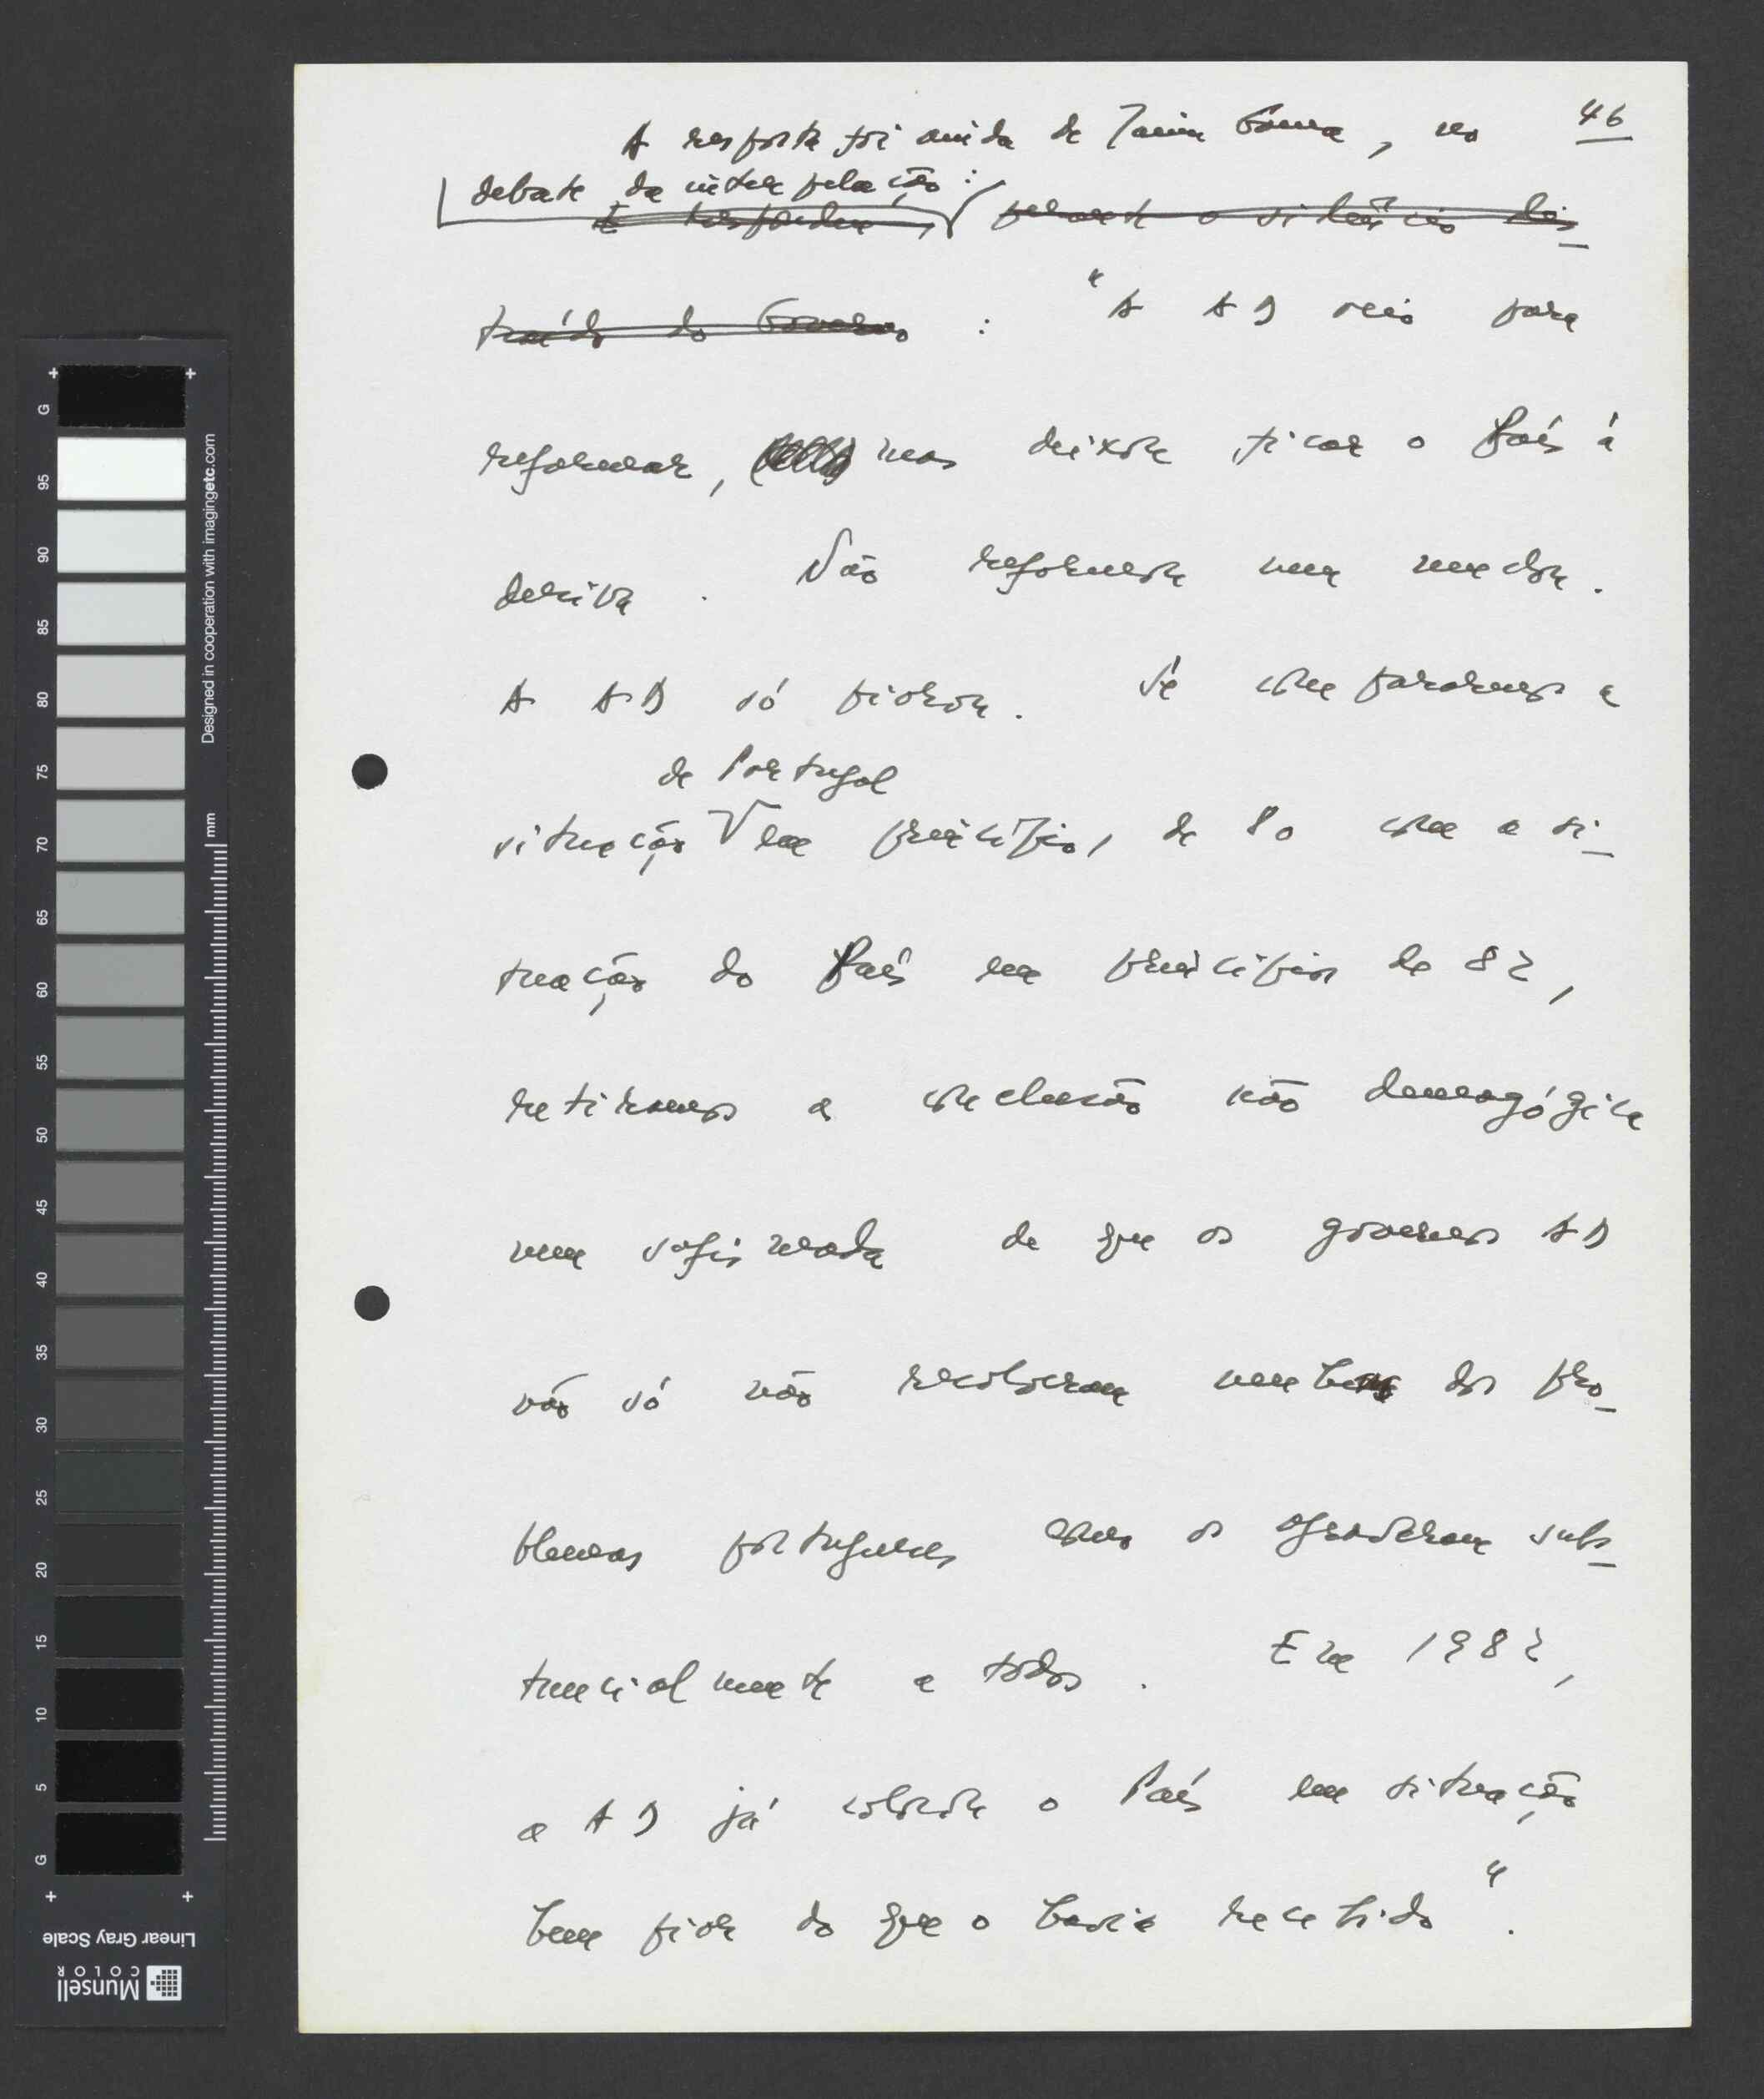 46
A resposta foi ainda de Jaime Gama, no
debate da interpelação:
E respondeu, perante o silêncio dis-
traído do Governo : "A AD veio para
reformar, mas deixou ficar o País à
deriva. Não reformou nem mudou.
A AD só piorou. Se compararmos a
de Portugal
situação em princípios de 80 com a si-
tuação do País em princípios de 82,
retiramos a conclusão não demagógica
nem sofismada de que os governos AD
não só não resolveram nenhum dos pro-
blemas portugueses como os agravaram subs-
tancialmente a todos. Em 1982,
a AD já colocou o País em situação
bem pior do que o havia recebido".
Designed in cooperation with imagingetc.com
mm
G
95
90
85
80
75
70
65
60
55
50
45
40
35
30
25
20
15
10
5
G
Linear Gray Scale
Munsell
COLOR